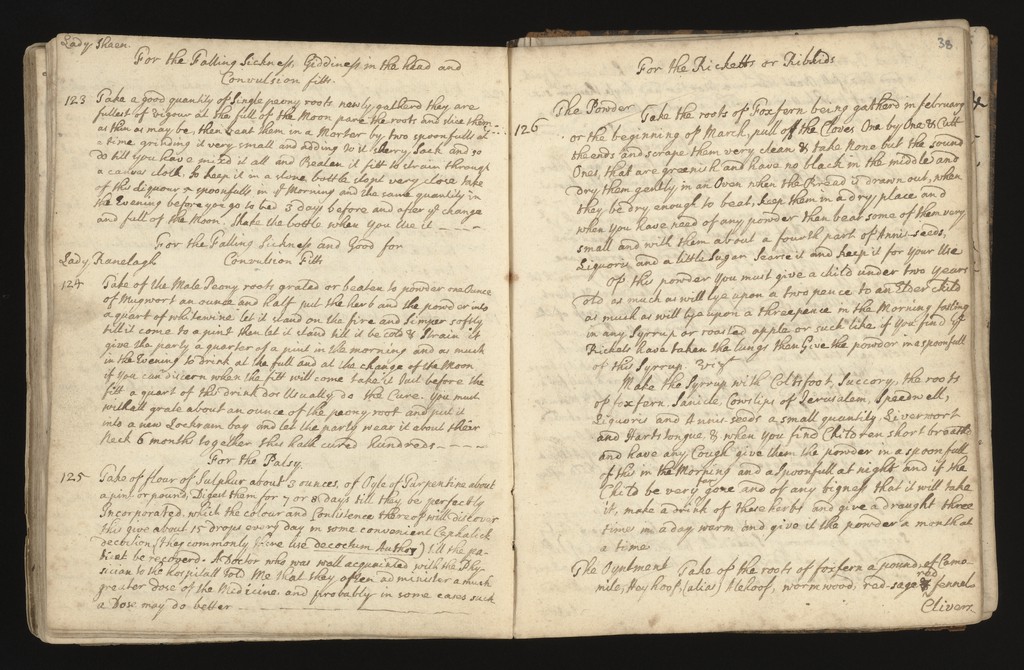 Lady Skaen
For the Falling Sickness. Giddiness in the head and
Convulsion fitts.
123 Take a good quantity of Single peony roots newly gatherd they are
fullest of vigour at the full of the Moon pare the roots and slice them
as thin as may be, then beat them in a Morter by two spoonfulls at
a time grinding it very small and adding to it sherry Sack and so
do till You have mixed it all and Beaten it fitt to strain through
a canvas cloth. so keep it in a stone bottle stopt very close take
of this liquour spoonfulls in ye Morning and the same quantity in
the Evening before you go to bed 3 days before and after ye change
and full of the Moon. Shake the bottle when You Use it
For the Falling Sickness and Good for
Lady Ranelagh Convulsion Fitts
124 Take of the Male Peony roots grated or beaten to powder one Ounce
of Mugwort an ounce and half put the herb and the powder into
a quart of whitewine let it stand on the fire and Simper softly
till it come to a pint then let it stand till it be cold & strain it
give the party a quarter of a pint in the morning and as much
in the Evening to drink at the full and at the change of the Moon
if You can discern when the fitt will come take it Just before the
fitt a quart of this drink dos Usually do the Cure. You must
withall grate about an ounce of the peony root and put it
into a new Lockram bag and let the party wear it about their
Neck 6 months together this hath cured hundreds
For the Palsy
125 Take of flour of Sulphur about 3 ounces, of Oyle of Turpentine about
a pint or pound, Digest them for 7 or 8 days till they be perfectly
Incorporated, which the colour and Consistence thereof will discover
this give about 15 drops every day in some convenient Cephalick
decoction, (they commonly give use decoctum Author) till the pa-
tient be recoverd. A Doctor who was well acquainted with the Phy-
sician to the hospitall told Me that they often administer a much
greater dose of the Medicine, and probably in some cases such
a Dose may do better
38
For the Ricketts or Ribbids
126 The Powder Take the roots of Foxfern being gatherd in february
or the beginning of March, pull off the Cloves One by One & Cutt
the ends and scrape them very clean & take None but the sound
Ones, that are greenish and have no black in the middle and
dry them gently in an Oven when the Bread is drawn out, when
they be dry enough to beat, keep them in a dry place and
when You have need of any powder then beat some of them very
small and with them about a fourth part of Annis-seeds,
Liquoris and a little Sugar Searce it and keep it for Your Use
Of this powder You must give a child under two Years
old as much as will lye upon a two pence to an Elder child
as much as will lye upon a three pence in the Morning fasting
in any Syrrup or roasted apple or such like if You find ye
Rickets have taken the lungs then Give the powder in a spoonfull
of this Syrrup Vizt
Make the Syrrup with Coltsfoot, Succory, the roots
of foxfern, Sanicle, Cowslips of Jerusalem, Speedwell,
Liquoris and Annis-seeds a small quantity, Liverwort
and Harts tongue, & when You find Children short breathd
and have any Cough give them the powder in a spoonfull
of this in the Morning and a spoonfull at night and if the
Child be very far gone and of any bigness that it will take
it, make a drink of these herbs and give a draught three
times in a day warm and give it the powder a month at
a time
The Oyntment Take of the roots of foxfern a pound, of Camo-
mile, Heyhoof, (alias) Alehoof, wormwood, red-sage & red fennel
Clivers